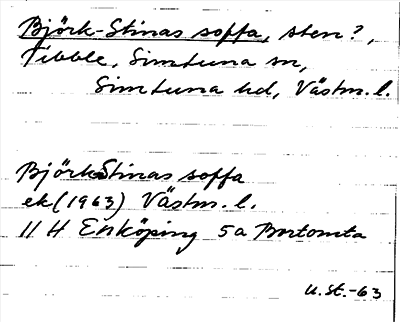 Björk-Stinas soffa, sten?,
Tibble, Simtuna sn,
Simtuna hd, Västm. l.
BjörkStinas soffa
ek (1963) Västm. l.
11 H Enköping 5a Bortomta
U.St.-63